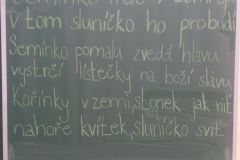 Semínko malé v zemi
v tom sluníčko ho probudí
Semínko pomalu zvedá hlavu
vystrčí lístečky na boží slávu
Kořínky v zemi, stonek jak nit
nahoře kvítek, sluníčko svit